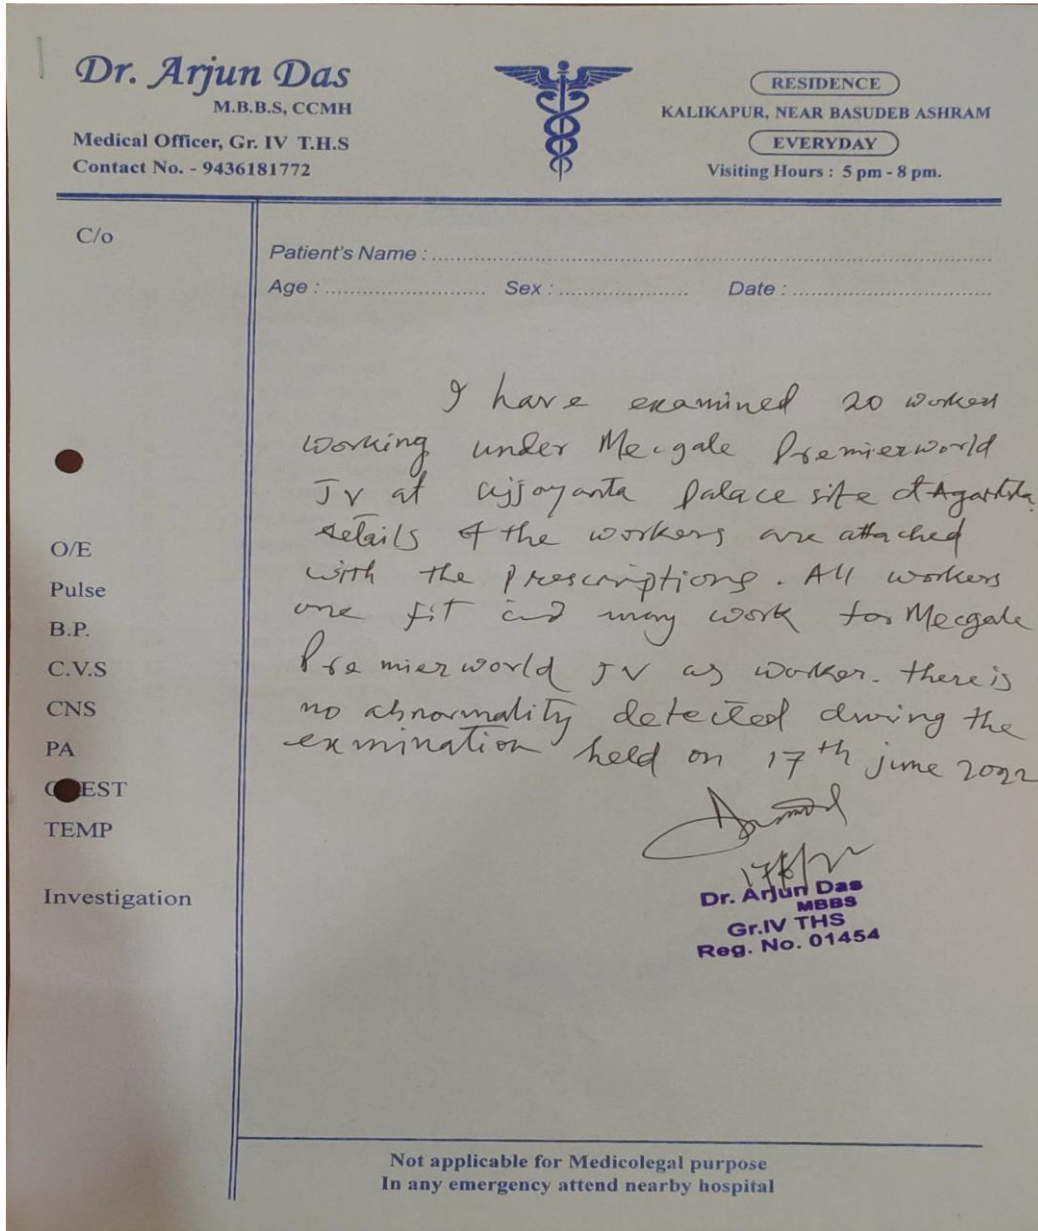 Dr. Arjun Das
M.B.B.S, CCMH
Medical Officer, Gr. IV T.H.S
Contact No. - 9436181772
RESIDENCE
KALIKAPUR, NEAR BASUDEB ASHRAM
EVERYDAY
Visiting Hours : 5 pm - 8 pm.
C/o
O/E
Pulse
B.P.
C.V.S
CNS
PA
CHEST
TEMP
Investigation
Patient's Name :
Age : Sex : Date :
I have examined 20 workers
working under Mecgale Premierworld
JV at ujjoyanta palace site at Agartala.
details of the workers are attached
with the prescriptions. All workers
are fit and may work for Mecgale
Premierworld JV as worker. there is
no abnormality detected during the
examination held on 17th june 2022
17/6/22
Dr. Arjun Das
MBBS
Gr.IV THS
Reg. No. 01454
Not applicable for Medicolegal purpose
In any emergency attend nearby hospital